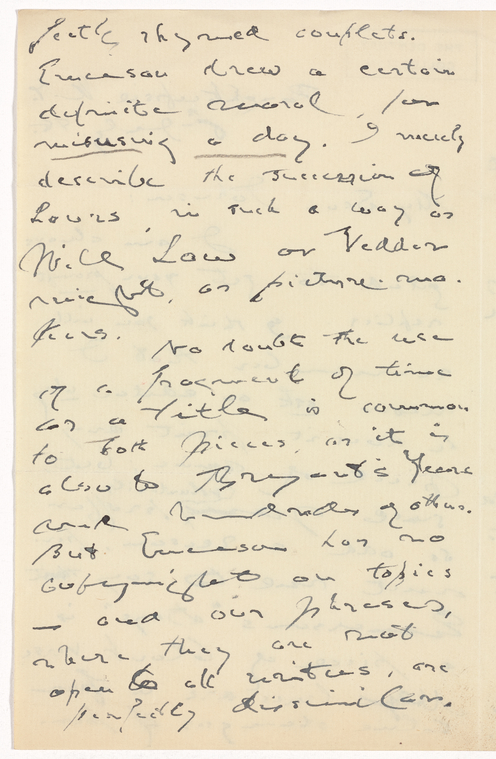 fectly rhymed couplets.
Emerson drew a certain
definite moral, for
misusing a day. I merely
describe the succession of
hours, in such a way as
Will Low or Vedder
might, as picture-ma-
kers. No doubt the use
of a fragment of time
as a title is common
to both pieces, as it is
also to Bryant's
and hundreds of others.
But Emerson has no
copyright on topics
— and our phrases,
where they are not
open to all writers, are
perfectly dissimilar.